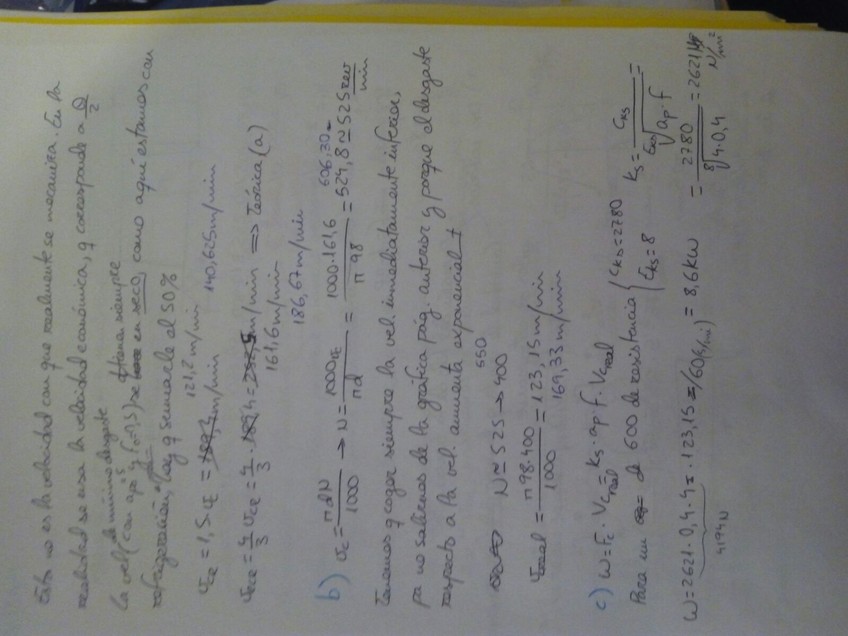 Esta no es la velocidad con que realmente se mecaniza. En la
realidad se usa la velocidad económica, q corresponde a Q/2
de mínimo desgaste
La vel (con ap=5 y f0=1,5) se obtiene siempre en seco, como aquí estamos con
refrigeración, hay q sumarle el 50%
121,2 m/min 140,625 m/min
Vce = 1,5 · Vc = m/min
Vce = 4/3 Vce = 4/3 · = m/min ⇒ Teórica (a)
161,6 m/min
186,67 m/min
606,30
b) Vc = πdN/1000 → N = 1000Vc/πd = 1000·161,6/π 98 = 524,8 ≈ 525 rev/min
Tenemos q coger siempre la vel. inmediatamente inferior,
pa no salirnos de la gráfica pág. anterior y porque el desgaste
respecto a la vel. aumenta exponencial t
550
N ≃ 525 → 400
Vreal = π 98·400/1000 = 123,15 m/min
169,33 m/min
c) W = Fc · Vcreal = ks · ap · f · Vcreal
Para un de 600 de resistencia { Cks = 2780 Eks = 8
ks = Cks/Eks√ap·f =
= 2780/8√4·0,4 = 2621 N/mm²
W = 2621·0,4·4 · 123,15 /60 = 8,6 kW
4194 N